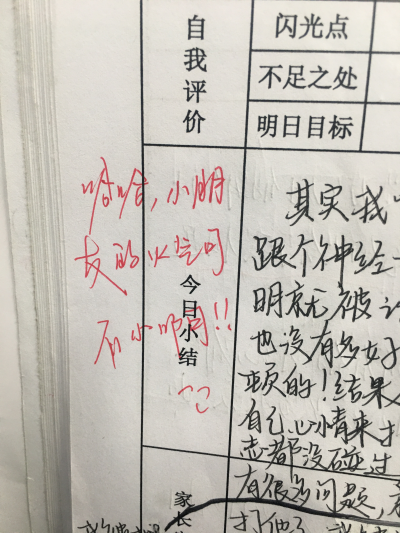 自我评价
闪光点
不足之处
明日目标
哈哈，小朋
友的火气可
不小啊!!
今日小结
其实我
跟个神经
明就被
也没有多好
顿的！结果
自己心情来
志都没碰过
有很多问题，
家长
打他